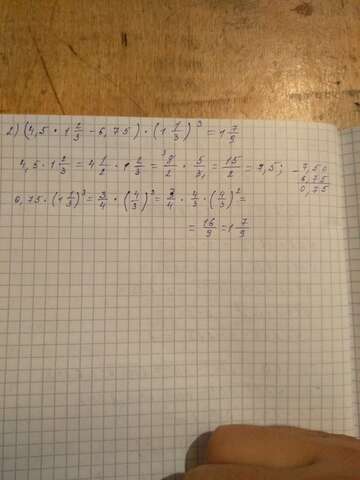 2) (4,5 · 1 2/3 - 6,75) · (1 1/3)^3 = 1 7/9
4,5 · 1 2/3 = 4 1/2 · 1 2/3 = 9/2 · 5/3 = 15/2 = 7,5; - 7,50
6,75
0,75
0,75 · (1 1/3)^3 = 3/4 · (4/3)^3 = 3/4 · 4/3 · (4/3)^2 =
= 16/9 = 1 7/9